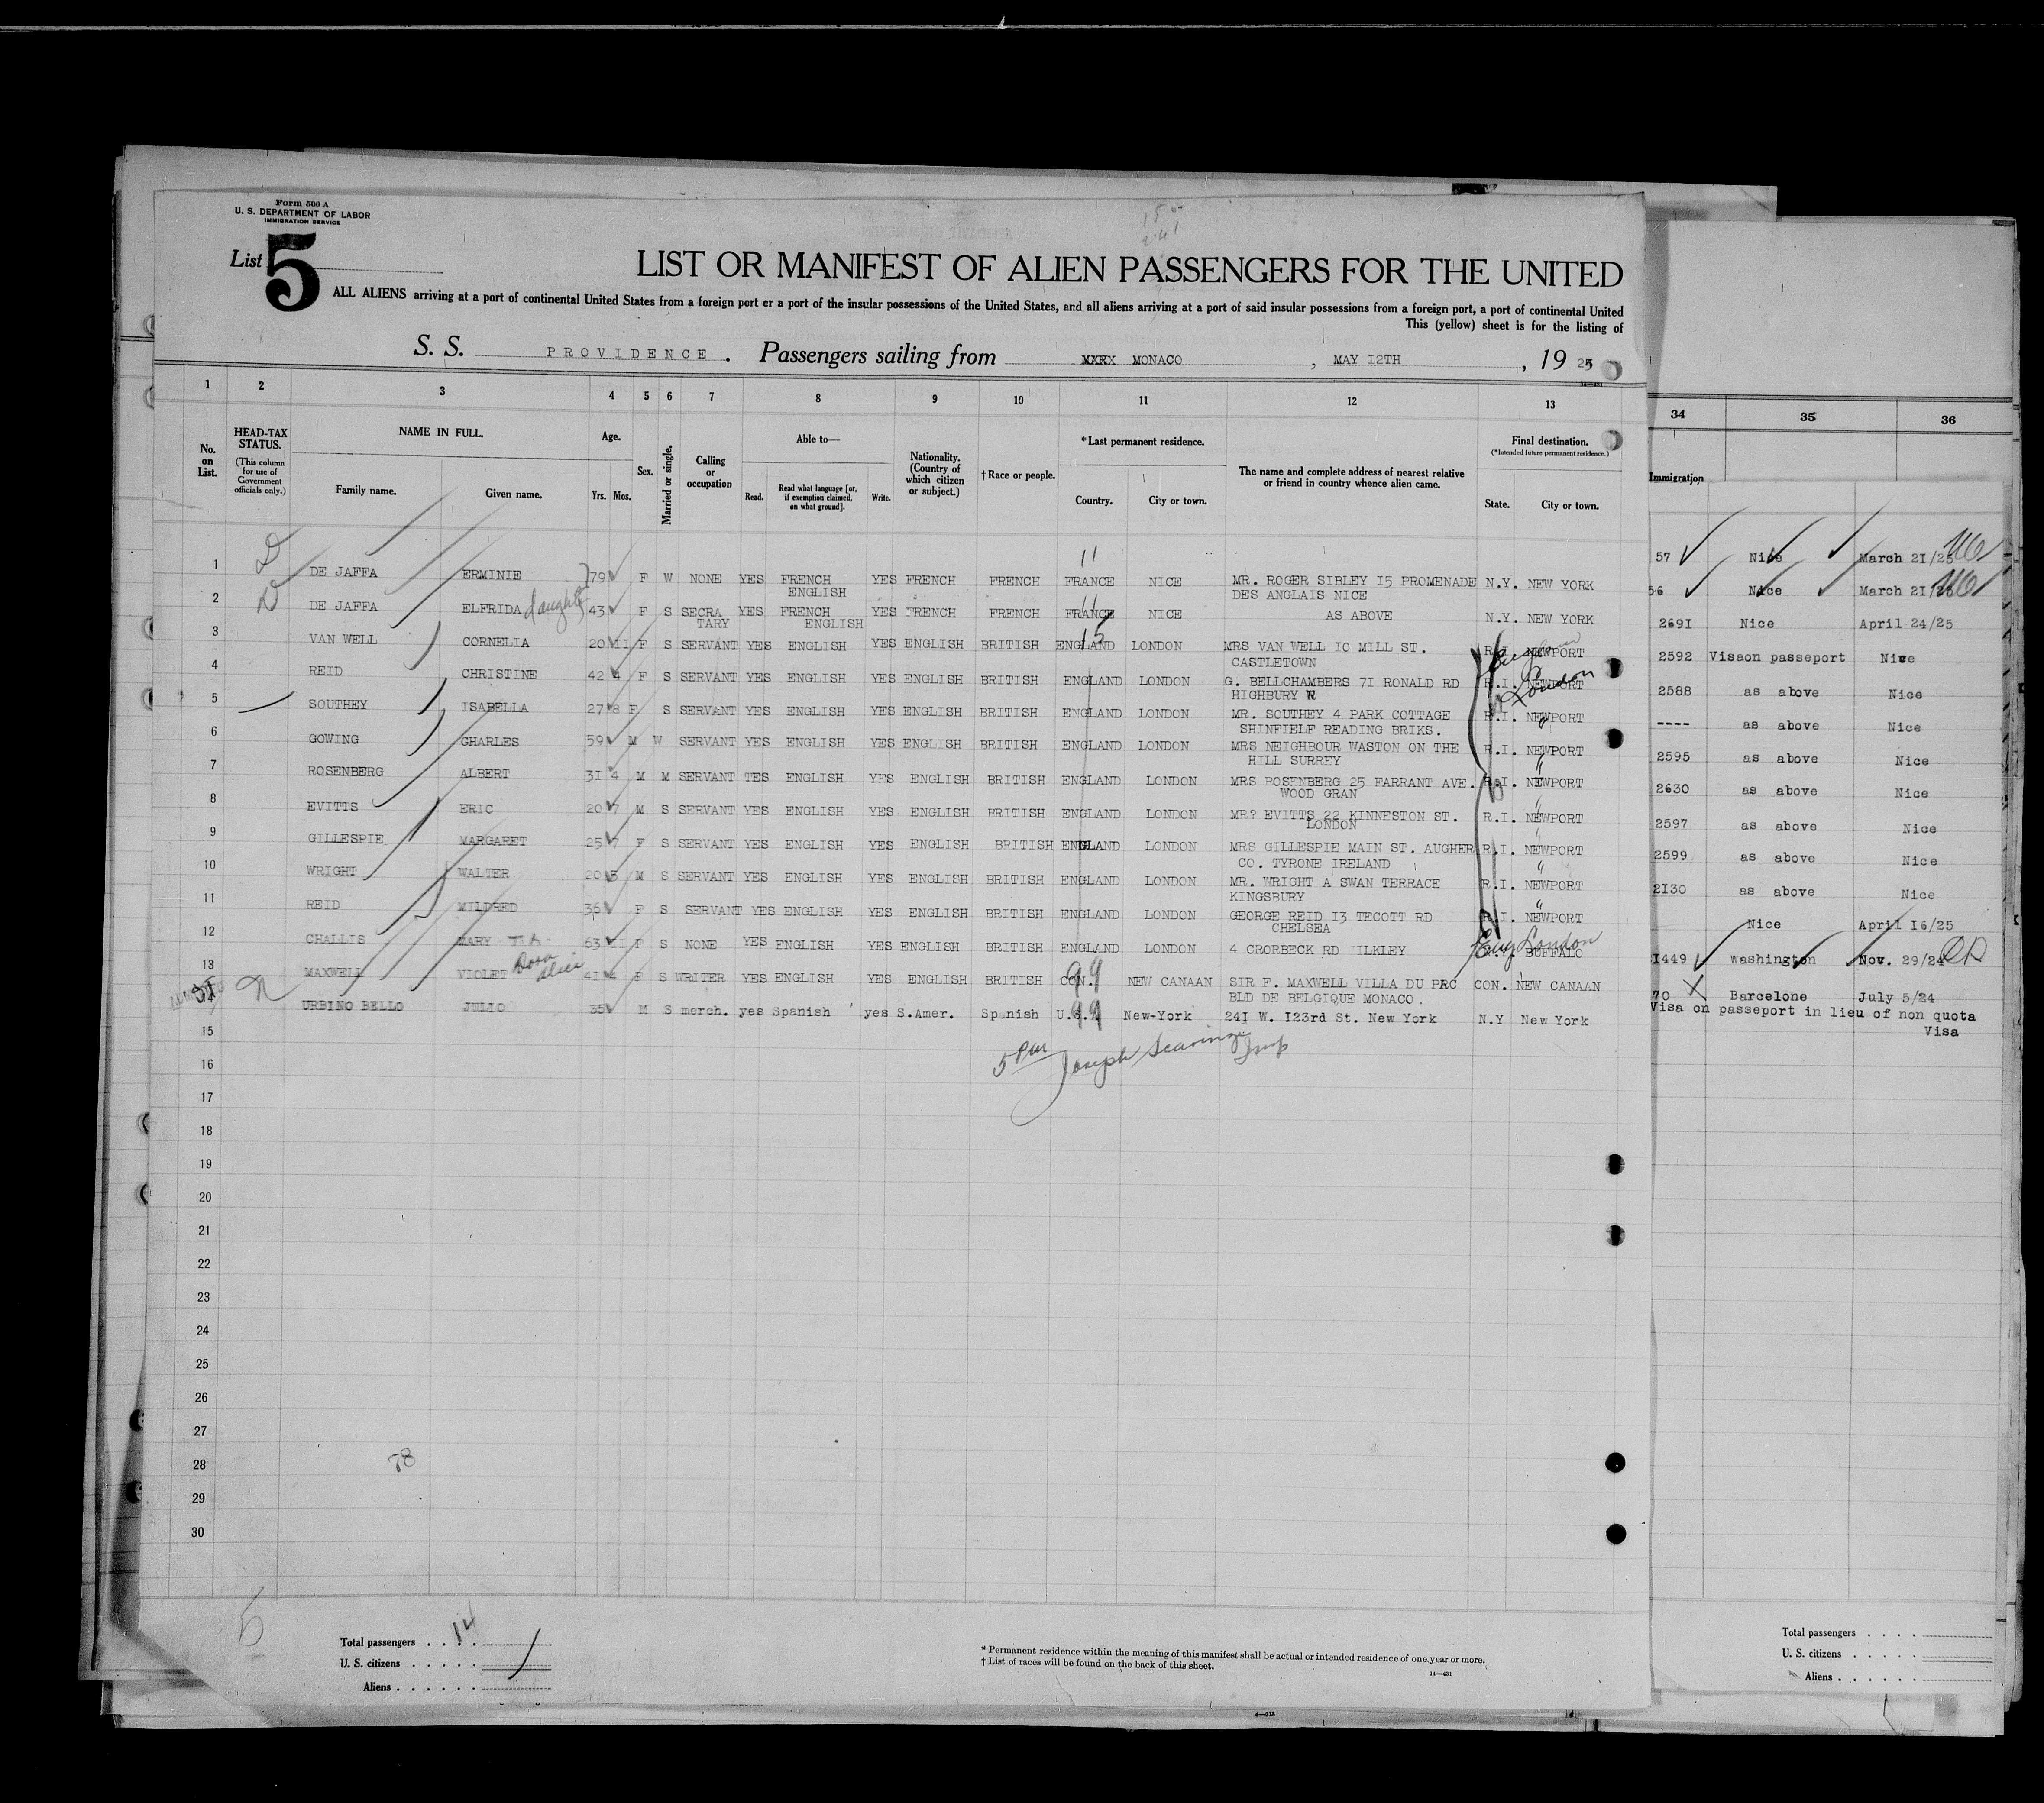 Form 500 A
U. S. DEPARTMENT OF LABOR
IMMIGRATION SERVICE
List 5
LIST OR MANIFEST OF ALIEN PASSENGERS FOR THE UNITED
ALL ALIENS arriving at a port of continental United States from a foreign port or a port of the insular possessions of the United States, and all aliens arriving at a port of said insular possessions from a foreign port, a port of continental United
This (yellow) sheet is for the listing of
S. S. PROVIDENCE. Passengers sailing from MONACO, MAY I2TH, 19 25
1 2 3 4 5 6 7 8 9 10 11 12 13 34 35 36
No. on List.
HEAD-TAX STATUS.
(This column for use of Government officials only.)
NAME IN FULL.
Family name. Given name.
Age.
Yrs. Mos.
Sex.
Married or single.
Calling or occupation
Able to—
Read. Read what language [or, if exemption claimed, on what ground]. Write.
Nationality. (Country of which citizen or subject.)
† Race or people.
* Last permanent residence.
Country. City or town.
The name and complete address of nearest relative or friend in country whence alien came.
Final destination.
(*Intended future permanent residence.)
State. City or town.
Immigration
1 DE JAFFA ERMINIE 79 F W NONE YES FRENCH ENGLISH YES FRENCH FRENCH FRANCE NICE MR. ROGER SIBLEY I5 PROMENADE DES ANGLAIS NICE N.Y. NEW YORK 57 Nice March 2I/25
2 DE JAFFA ELFRIDA daughter 43 F S SECRA TARY YES FRENCH ENGLISH YES FRENCH FRENCH FRANCE NICE AS ABOVE N.Y. NEW YORK 56 Nice March 2I/25
3 VAN WELL CORNELIA 20 II F S SERVANT YES ENGLISH YES ENGLISH BRITISH ENGLAND LONDON MRS VAN WELL IO MILL ST. CASTLETOWN R.I. NEWPORT 269I Nice April 24/25
4 REID CHRISTINE 42 4 F S SERVANT YES ENGLISH YES ENGLISH BRITISH ENGLAND LONDON G. BELLCHAMBERS 7I RONALD RD HIGHBURY R.I. NEWPORT London 2592 Visaon passeport Nice
5 SOUTHEY ISABELLA 27 8 F S SERVANT YES ENGLISH YES ENGLISH BRITISH ENGLAND LONDON MR. SOUTHEY 4 PARK COTTAGE SHINFIELF READING BRIKS. R.I. NEWPORT 2588 as above Nice
6 GOWING GHARLES 59 M W SERVANT YES ENGLISH YES ENGLISH BRITISH ENGLAND LONDON MRS NEIGHBOUR WASTON ON THE HILL SURREY R.I. NEWPORT ---- as above Nice
7 ROSENBERG ALBERT 3I 4 M M SERVANT TES ENGLISH YES ENGLISH BRITISH ENGLAND LONDON MRS ROSENBERG 25 FARRANT AVE. WOOD GRAN R.I. NEWPORT 2595 as above Nice
8 EVITTS ERIC 20 7 M S SERVANT YES ENGLISH YES ENGLISH BRITISH ENGLAND LONDON MR? EVITTS 22 KINNESTON ST. LONDON R.I. NEWPORT 2630 as above Nice
9 GILLESPIE MARGARET 25 7 F S SERVANT YES ENGLISH YES ENGLISH BRITISH ENGLAND LONDON MRS GILLESPIE MAIN ST. AUGHER CO. TYRONE IRELAND R.I. NEWPORT 2597 as above Nice
10 WRIGHT WALTER 20 5 M S SERVANT YES ENGLISH YES ENGLISH BRITISH ENGLAND LONDON MR. WRIGHT A SWAN TERRACE KINGSBURY R.I. NEWPORT 2599 as above Nice
11 REID MILDRED 36 F S SERVANT YES ENGLISH YES ENGLISH BRITISH ENGLAND LONDON GEORGE REID I3 TECOTT RD CHELSEA R.I. NEWPORT 2I30 as above Nice
12 CHALLIS MARY 63 II F S NONE YES ENGLISH YES ENGLISH BRITISH ENGLAND LONDON 4 CRORBECK RD ILKLEY Eng London BUFFALO Nice April I6/25
13 MAXWELL VIOLET Dora Alice 4I 4 F S WRITER YES ENGLISH YES ENGLISH BRITISH CON. 99 NEW CANAAN SIR F. MAXWELL VILLA DU PRC BLD DE BELGIQUE MONACO. CON. NEW CANAAN I449 Washington Nov. 29/24
URBINO BELLO JULIO 35 M S merch. yes Spanish yes S.Amer. Spanish U.S. 99 New-York 24I W. I23rd St. New York N.Y New York 70 Barcelone July 5/24
Visa on passeport in lieu of non quota Visa
15
5 Joseph Insp
16
17
18
19
20
21
22
23
24
25
26
27
28 78
29
30
5
Total passengers . . . . 14
U. S. citizens . . . . .
Aliens . . . . . .
* Permanent residence within the meaning of this manifest shall be actual or intended residence of one year or more.
† List of races will be found on the back of this sheet.
14—431
Total passengers . . . .
U. S. citizens . . . . .
Aliens . . . . .